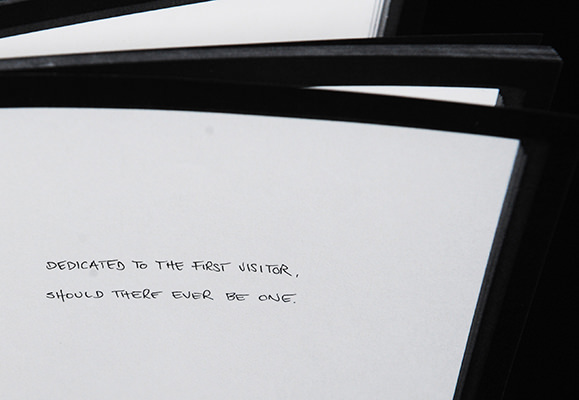 DEDICATED TO THE FIRST VISITOR,
SHOULD THERE EVER BE ONE.